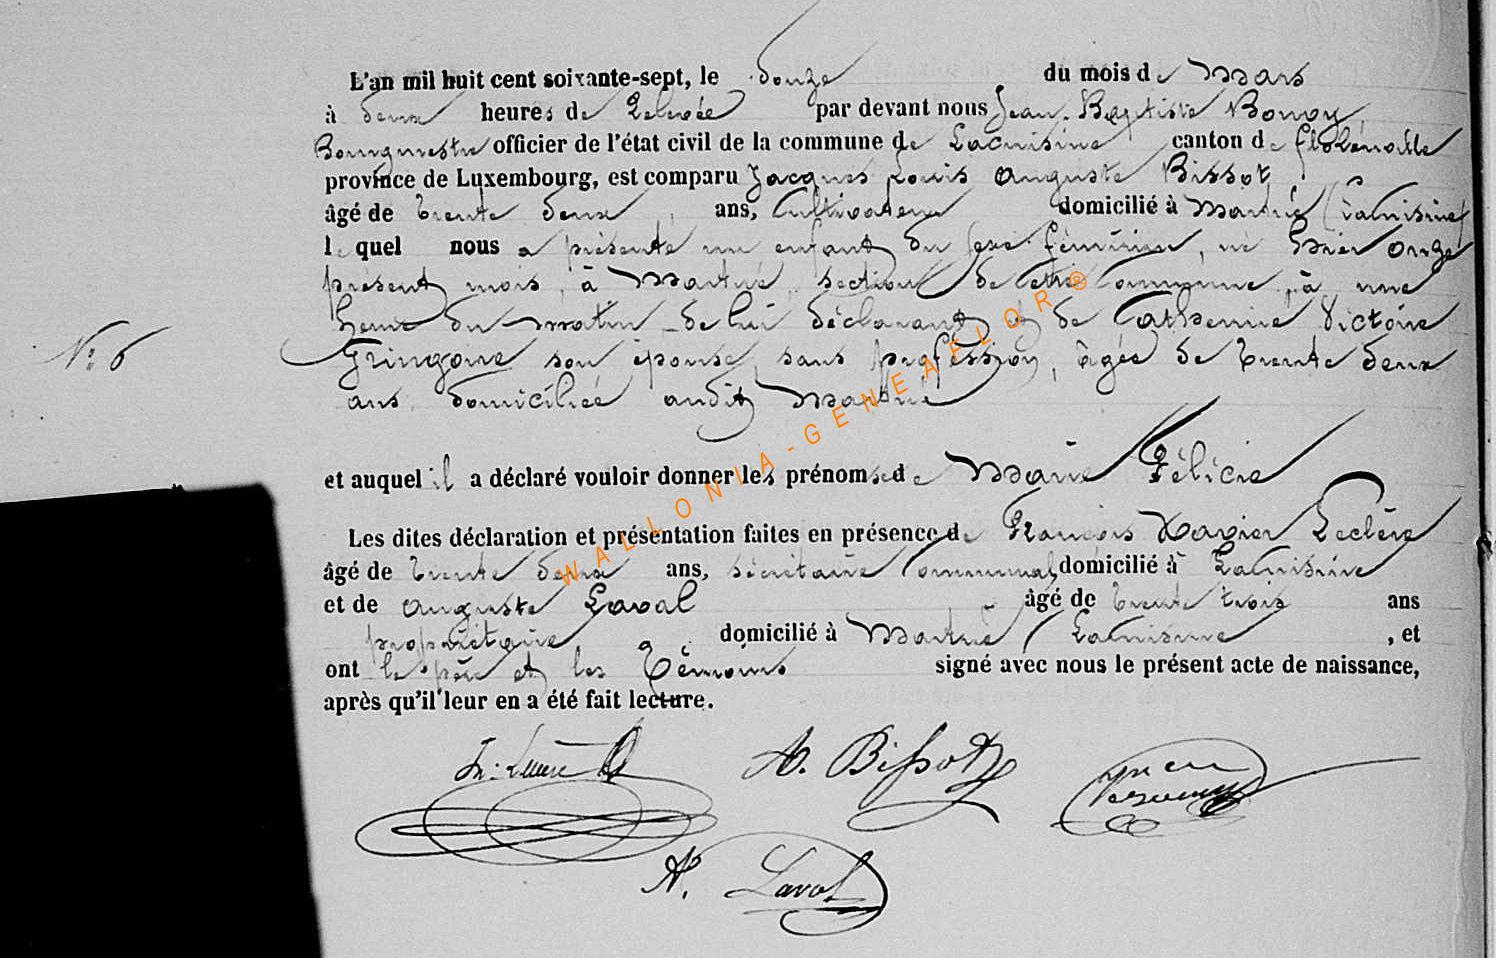 L'an mil huit cent soixante-sept, le douze du mois de Mars
à deux heures de Relevée par devant nous Jean-Baptiste Bonvoy,
Bourgmestre officier de l'état civil de la commune de Lacuisine canton de florenville
province de Luxembourg, est comparu Jacques Louis auguste Bissot,
âgé de trente deux ans, Cultivateur domicilié à Martué (Lacuisine)
lequel nous a présenté un enfant du sexe féminin, né hier onze
présent mois, à Martué, section de cette Commune, à une
heure du matin de lui déclarant et de Catherine Victoire
N: 6
Gringoire son épouse, sans profession, âgée de trente deux
ans, domiciliée audit Martué
et auquel il a déclaré vouloir donner les prénoms de Marie Félicie
Les dites déclaration et présentation faites en présence de François Xavier Leclère
âgé de trente deux ans, sécrétaire Communal domicilié à Lacuisine
et de auguste Laval âgé de trente trois ans
propriétaire domicilié à Martué / Lacuisine , et
ont le père et les témoins signé avec nous le présent acte de naissance,
après qu'il leur en a été fait lecture.
A. Bissot
A. Laval
WALLONIA-GENEAFLOR®